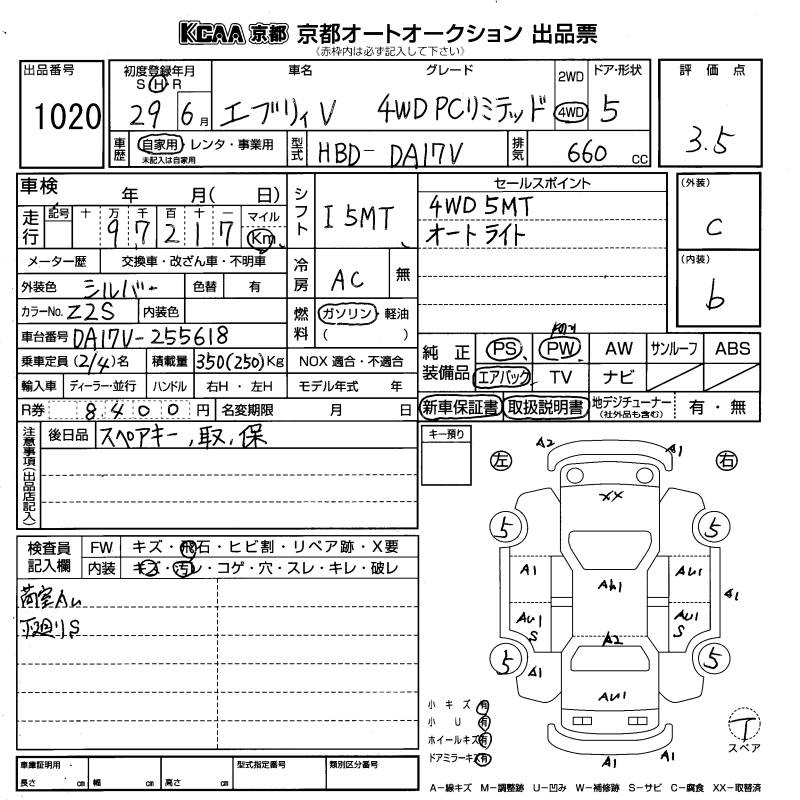 KCAA 京都 京都オートオークション 出品票
《赤枠内は必ず記入して下さい》
出品番号 1020
初度登録年月 S H R 29 6月
車名 エブリイV
グレード 4WD PCリミテッド
2WD 4WD
ドア・形状 5
評価点 3.5
車歴 自家用 レンタ・事業用 未記入は自家用
型式 HBD- DA17V
排気 660 CC
車検 年 月( 日)
シフト I 5MT
セールスポイント
4WD 5MT
オートライト
(外装) C
(内装) b
走行 記号 十 万 千 百 十 一 マイル Km
9 7 2 1 7
メーター歴 交換車・改ざん車・不明車
冷房 AC 無
外装色 シルバー 色替 有
カラーNo. Z2S 内装色
燃料 ガソリン・軽油 ( )
車台番号 DA17V-255618
乗車定員 (2/4)名 積載量 350(250)Kg NOX 適合・不適合
輸入車 ディーラー・並行 ハンドル 右H・左H モデル年式 年
R券 8400円 名変期限 月 日
純正装備品 PS PW AW サンルーフ ABS
エアバック TV ナビ
新車保証書 取扱説明書 地デジチューナー (社外品も含む) 有・無
注意事項(出品店記入)
後日品 スペアキー,取,保
キー預り
左 右
A2 A1
XX
5 5
A1 AU1 AU1
A1
AU1 S AU1 S
A2
5 A1 5
AU1
A1 A1
検査員記入欄 FW キズ・飛石・ヒビ割・リペア跡・X要
内装 キズ・汚レ・コゲ・穴・スレ・キレ・破レ
荷室AU
下廻りS
小キズ 有
小U 有
ホイールキズ 有
ドアミラーキズ 有
T スペア
車庫証明用 長さ cm 幅 cm 高さ cm
型式指定番号 類別区分番号
A-線キズ M-調整跡 U-凹み W-補修跡 S-サビ C-腐食 XX-取替済